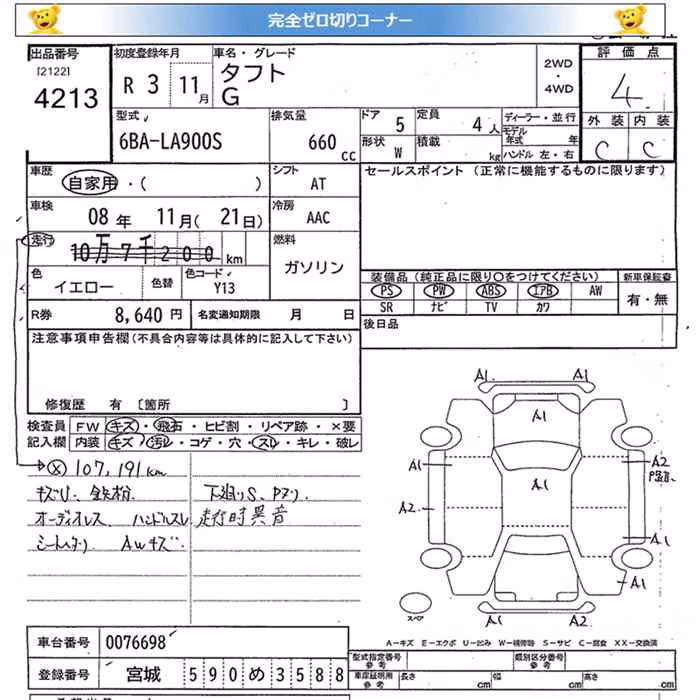 完全ゼロ切りコーナー
出品番号
[2122]
4213
初度登録年月
R 3 11月
車名・グレード
タフト
G
2WD
・
4WD
評価点
4
外装 内装
C C
型式
6BA-LA900S
排気量
660 cc
ドア 5
定員 4人
形状 W
積載 kg
ディーラー・並行
モデル年式 年
ハンドル 左・右
車歴
自家用・( )
シフト
AT
セールスポイント (正常に機能するものに限ります)
車検
08年 11月( 21日)
冷房
AAC
走行
10万7千200 km
燃料
ガソリン
色
イエロー
色替
色コード
Y13
装備品 (純正品に限り○をつけてください)
新車保証書
PS PW ABS エアB AW
SR ナビ TV カワ
有・無
R券 8,640円
名変通知期限 月 日
後日品
注意事項申告欄(不具合内容等は具体的に記入して下さい)
修復歴 有 [箇所 ]
検査員
記入欄
FW キズ・飛石・ヒビ割・リペア跡・×要
内装 キズ・汚レ・コゲ・穴・スレ・キレ・破レ
→ⓧ 107,191km
キズリ、鉄粉
下廻りS、Pヌリ
オーディオレス ハンドルスレ 走行時異音
シートヘタリ AWキズ
A1 A1
A1
A1 A1 A2
A2
A1
A1
スペア
A-キズ E-エクボ U-凹み W-補修跡 S-サビ C-腐食 XX-交換済
車台番号 0076698
登録番号 宮城 590め3588
型式指定番号
参考
類別区分番号
参考
車庫証明用
参考
長さ cm 幅 cm 高さ cm